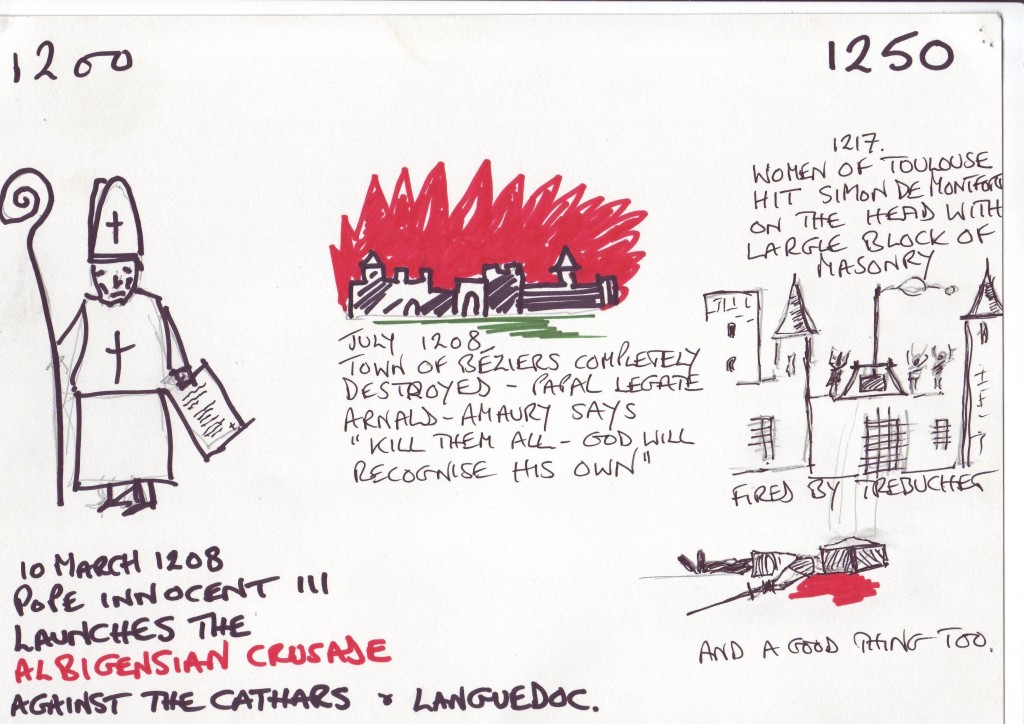 1200
1250
10 MARCH 1208
POPE INNOCENT III
LAUNCHES THE
ALBIGENSIAN CRUSADE
AGAINST THE CATHARS & LANGUEDOC.
JULY 1208
TOWN OF BÉZIERS COMPLETELY
DESTROYED - PAPAL LEGATE
ARNALD-AMAURY SAYS
"KILL THEM ALL - GOD WILL
RECOGNISE HIS OWN"
1217.
WOMEN OF TOULOUSE
HIT SIMON DE MONTFORT
ON THE HEAD WITH
LARGLE BLOCK OF
MASONRY
FIRED BY TREBUCHET
AND A GOOD THING TOO.